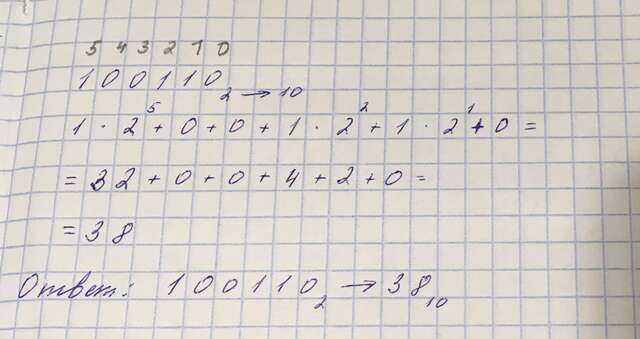 5 4 3 2 1 0
100110₂ → 10
1 · 2⁵ + 0 + 0 + 1 · 2² + 1 · 2¹ + 0 =
= 32 + 0 + 0 + 4 + 2 + 0 =
= 38
Ответ: 100110₂ → 38₁₀